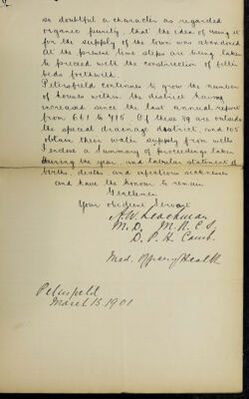 so doubtful a character as regarded
organic purity, that the idea of using it
for the supply of the town was abandoned
at the present time steps are being taken
to proceed with the construction of filter
beds forthwith.
Petersfield continues to grow the number
of houses within the district having
increased since the last annual report
from 661 to 715. Of these 89 are outside
the special drainage district and 105
obtain their water supply from wells
I enclose a summary of proceedings taken
during the year and tabular statement of
births, deaths and infectious sicknesses
and have the honour to remain
Gentlemen
Your obedient Servant
A.W. Leachman
M.D. M.R.C.S.
D.P.H. Camb.
Med. Officer of Health
Petersfield
March 15 1901